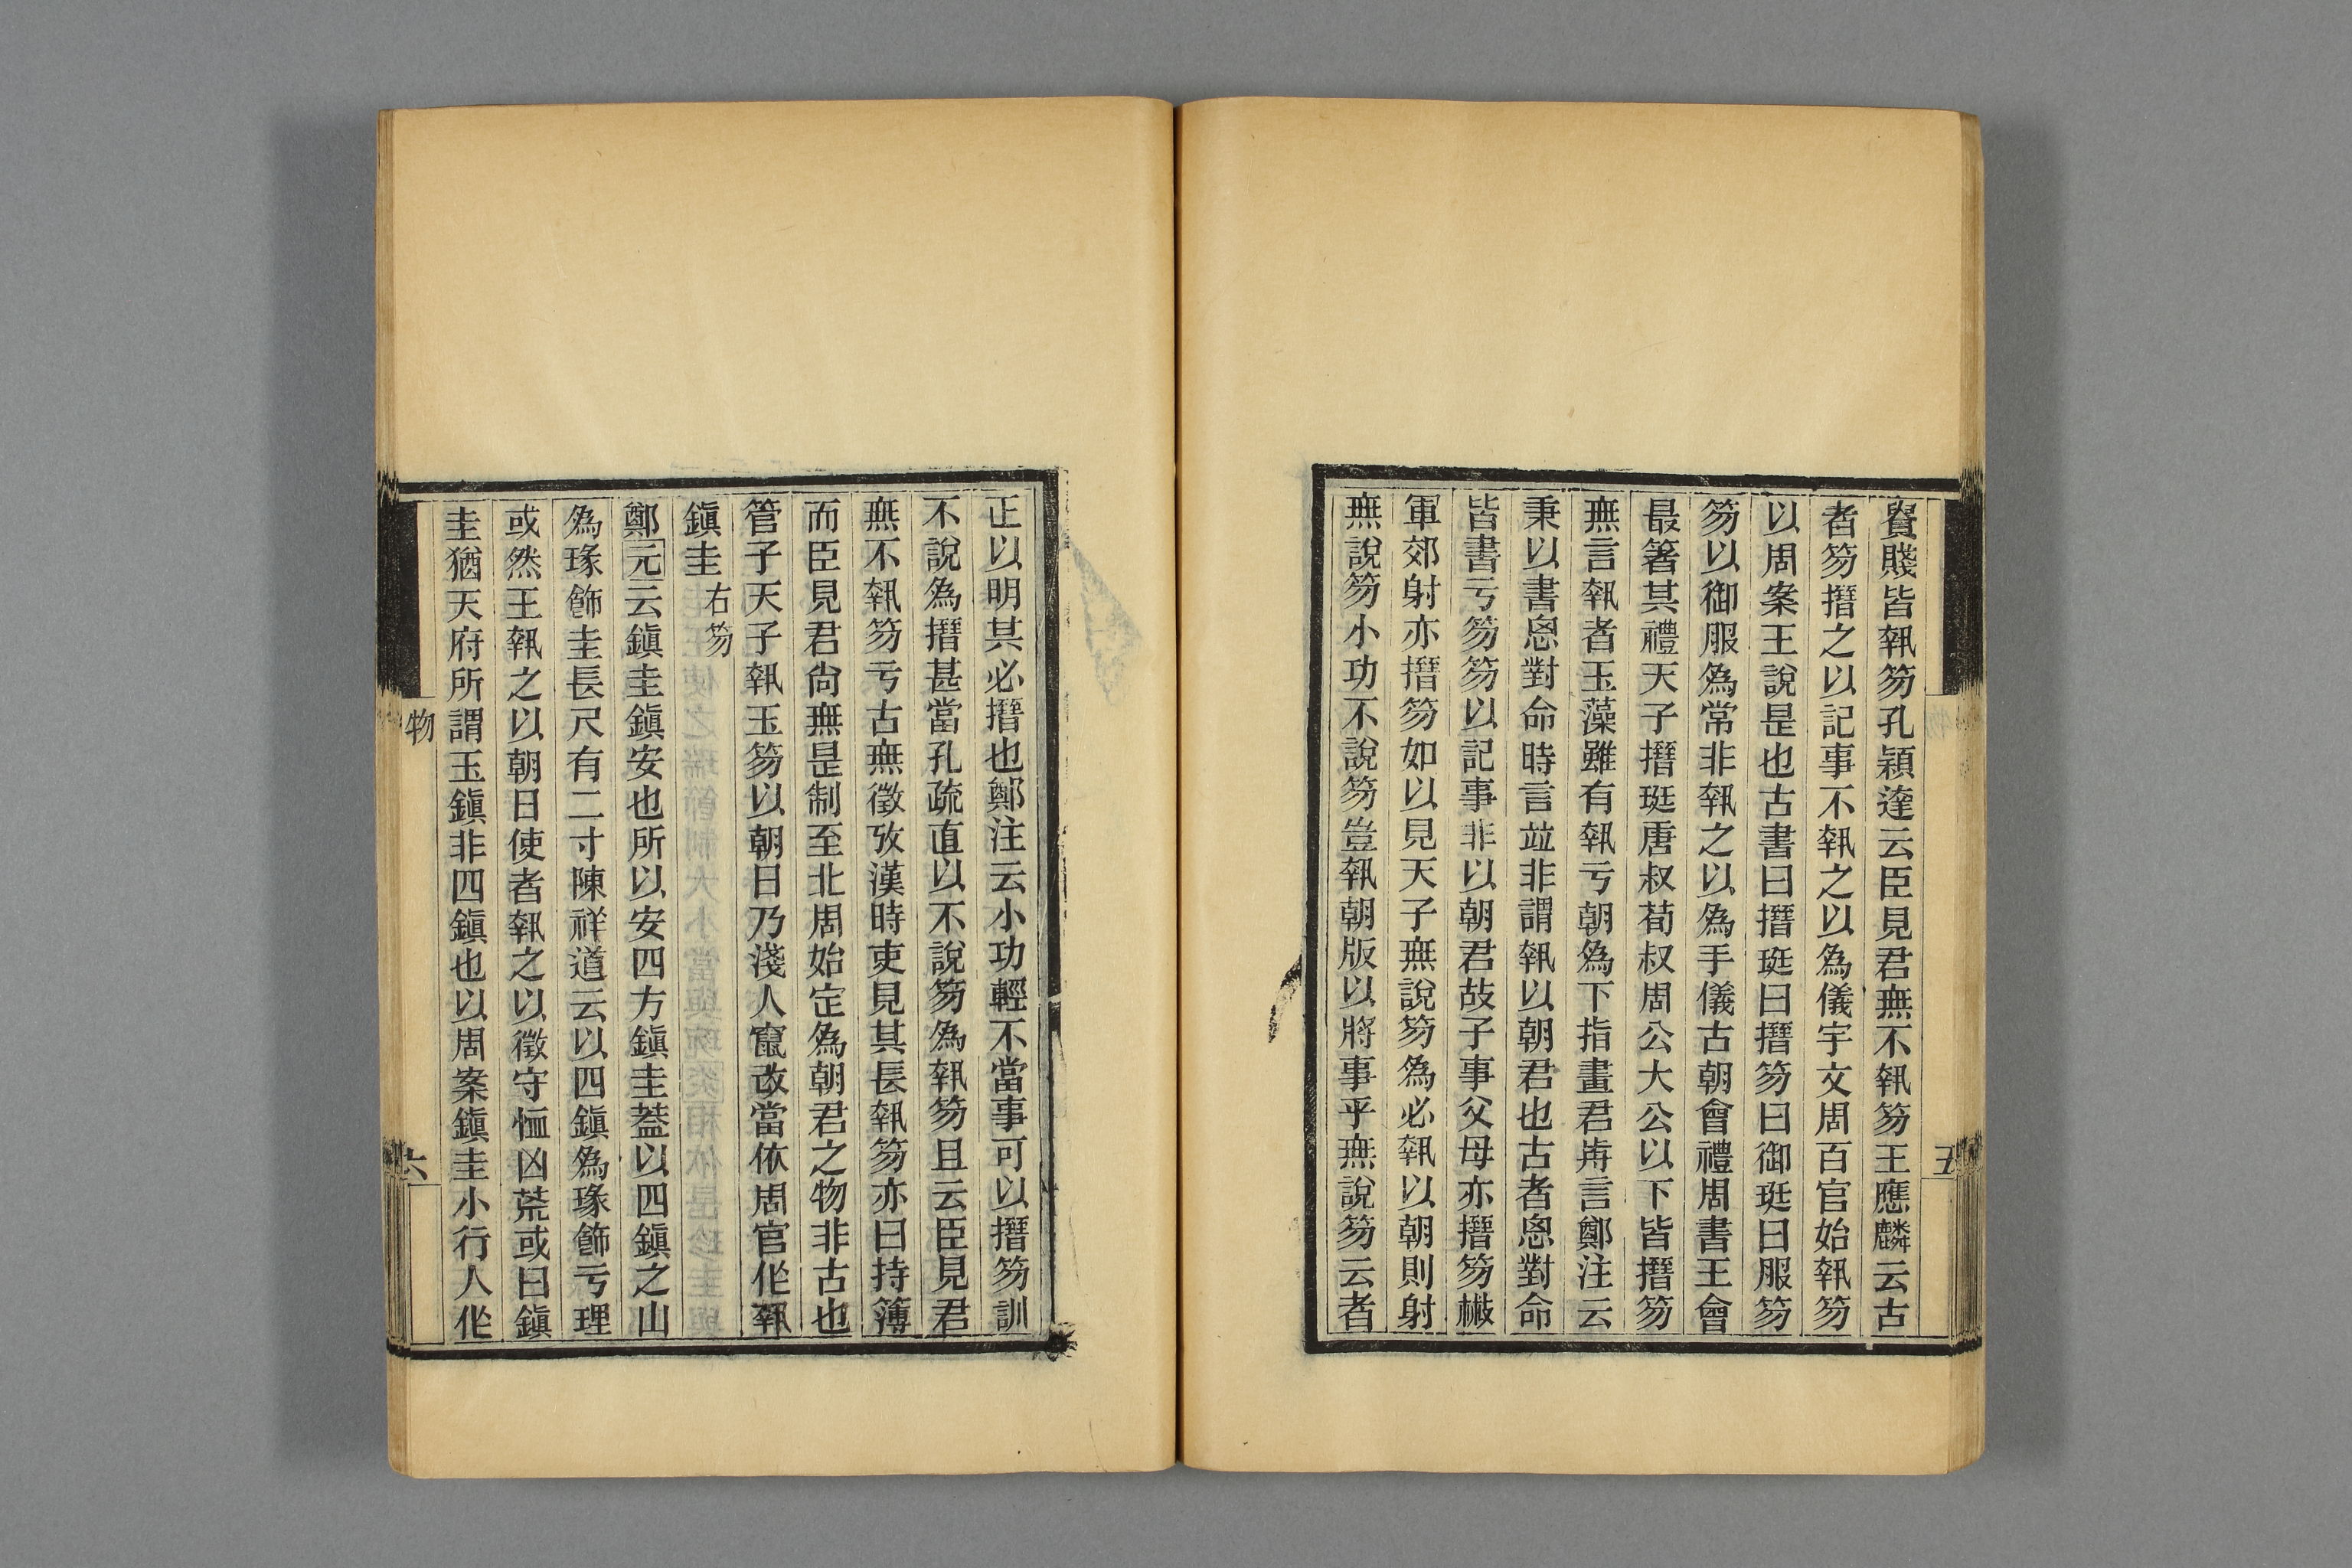 貴賤皆執笏孔穎達云臣見君無不執笏王應麟云古
者笏搢之以記事不執之以為儀宇文周百官始執笏
以周案王說是也古書曰搢珽曰搢笏曰御珽曰服笏
笏以御服為常非執之以為手儀古朝會禮周書王會
最箸其禮天子搢珽唐叔荀叔周公大公以下皆搢笏
無言執者玉藻雖有執亏朝為下指畫君歬言鄭注云
秉以書恖對命時言竝非謂執以朝君也古者恖對命
皆書亏笏笏以記事非以朝君故子事父母亦搢笏檄
軍郊射亦搢笏如以見天子無說笏為必執以朝則射
無說笏小功不說笏豈執朝版以將事乎無說笏云者
五
正以明其必搢也鄭注云小功輕不當事可以搢笏訓
不說為搢甚當孔疏直以不說笏為執笏且云臣見君
無不執笏亏古無徵攷漢時吏見其長執笏亦曰持簿
而臣見君尙無是制至北周始定為朝君之物非古也
管子天子執玉笏以朝日乃淺人竄改當依周官作執
鎭圭 右笏
鄭元云鎭圭鎭安也所以安四方鎭圭葢以四鎭之山
為瑑飾圭長尺有二寸陳祥道云以四鎭為瑑飾亏理
或然王執之以朝日使者執之以徵守恤凶荒或曰鎭
圭猶天府所謂玉鎭非四鎭也以周案鎭圭小行人作
物
六